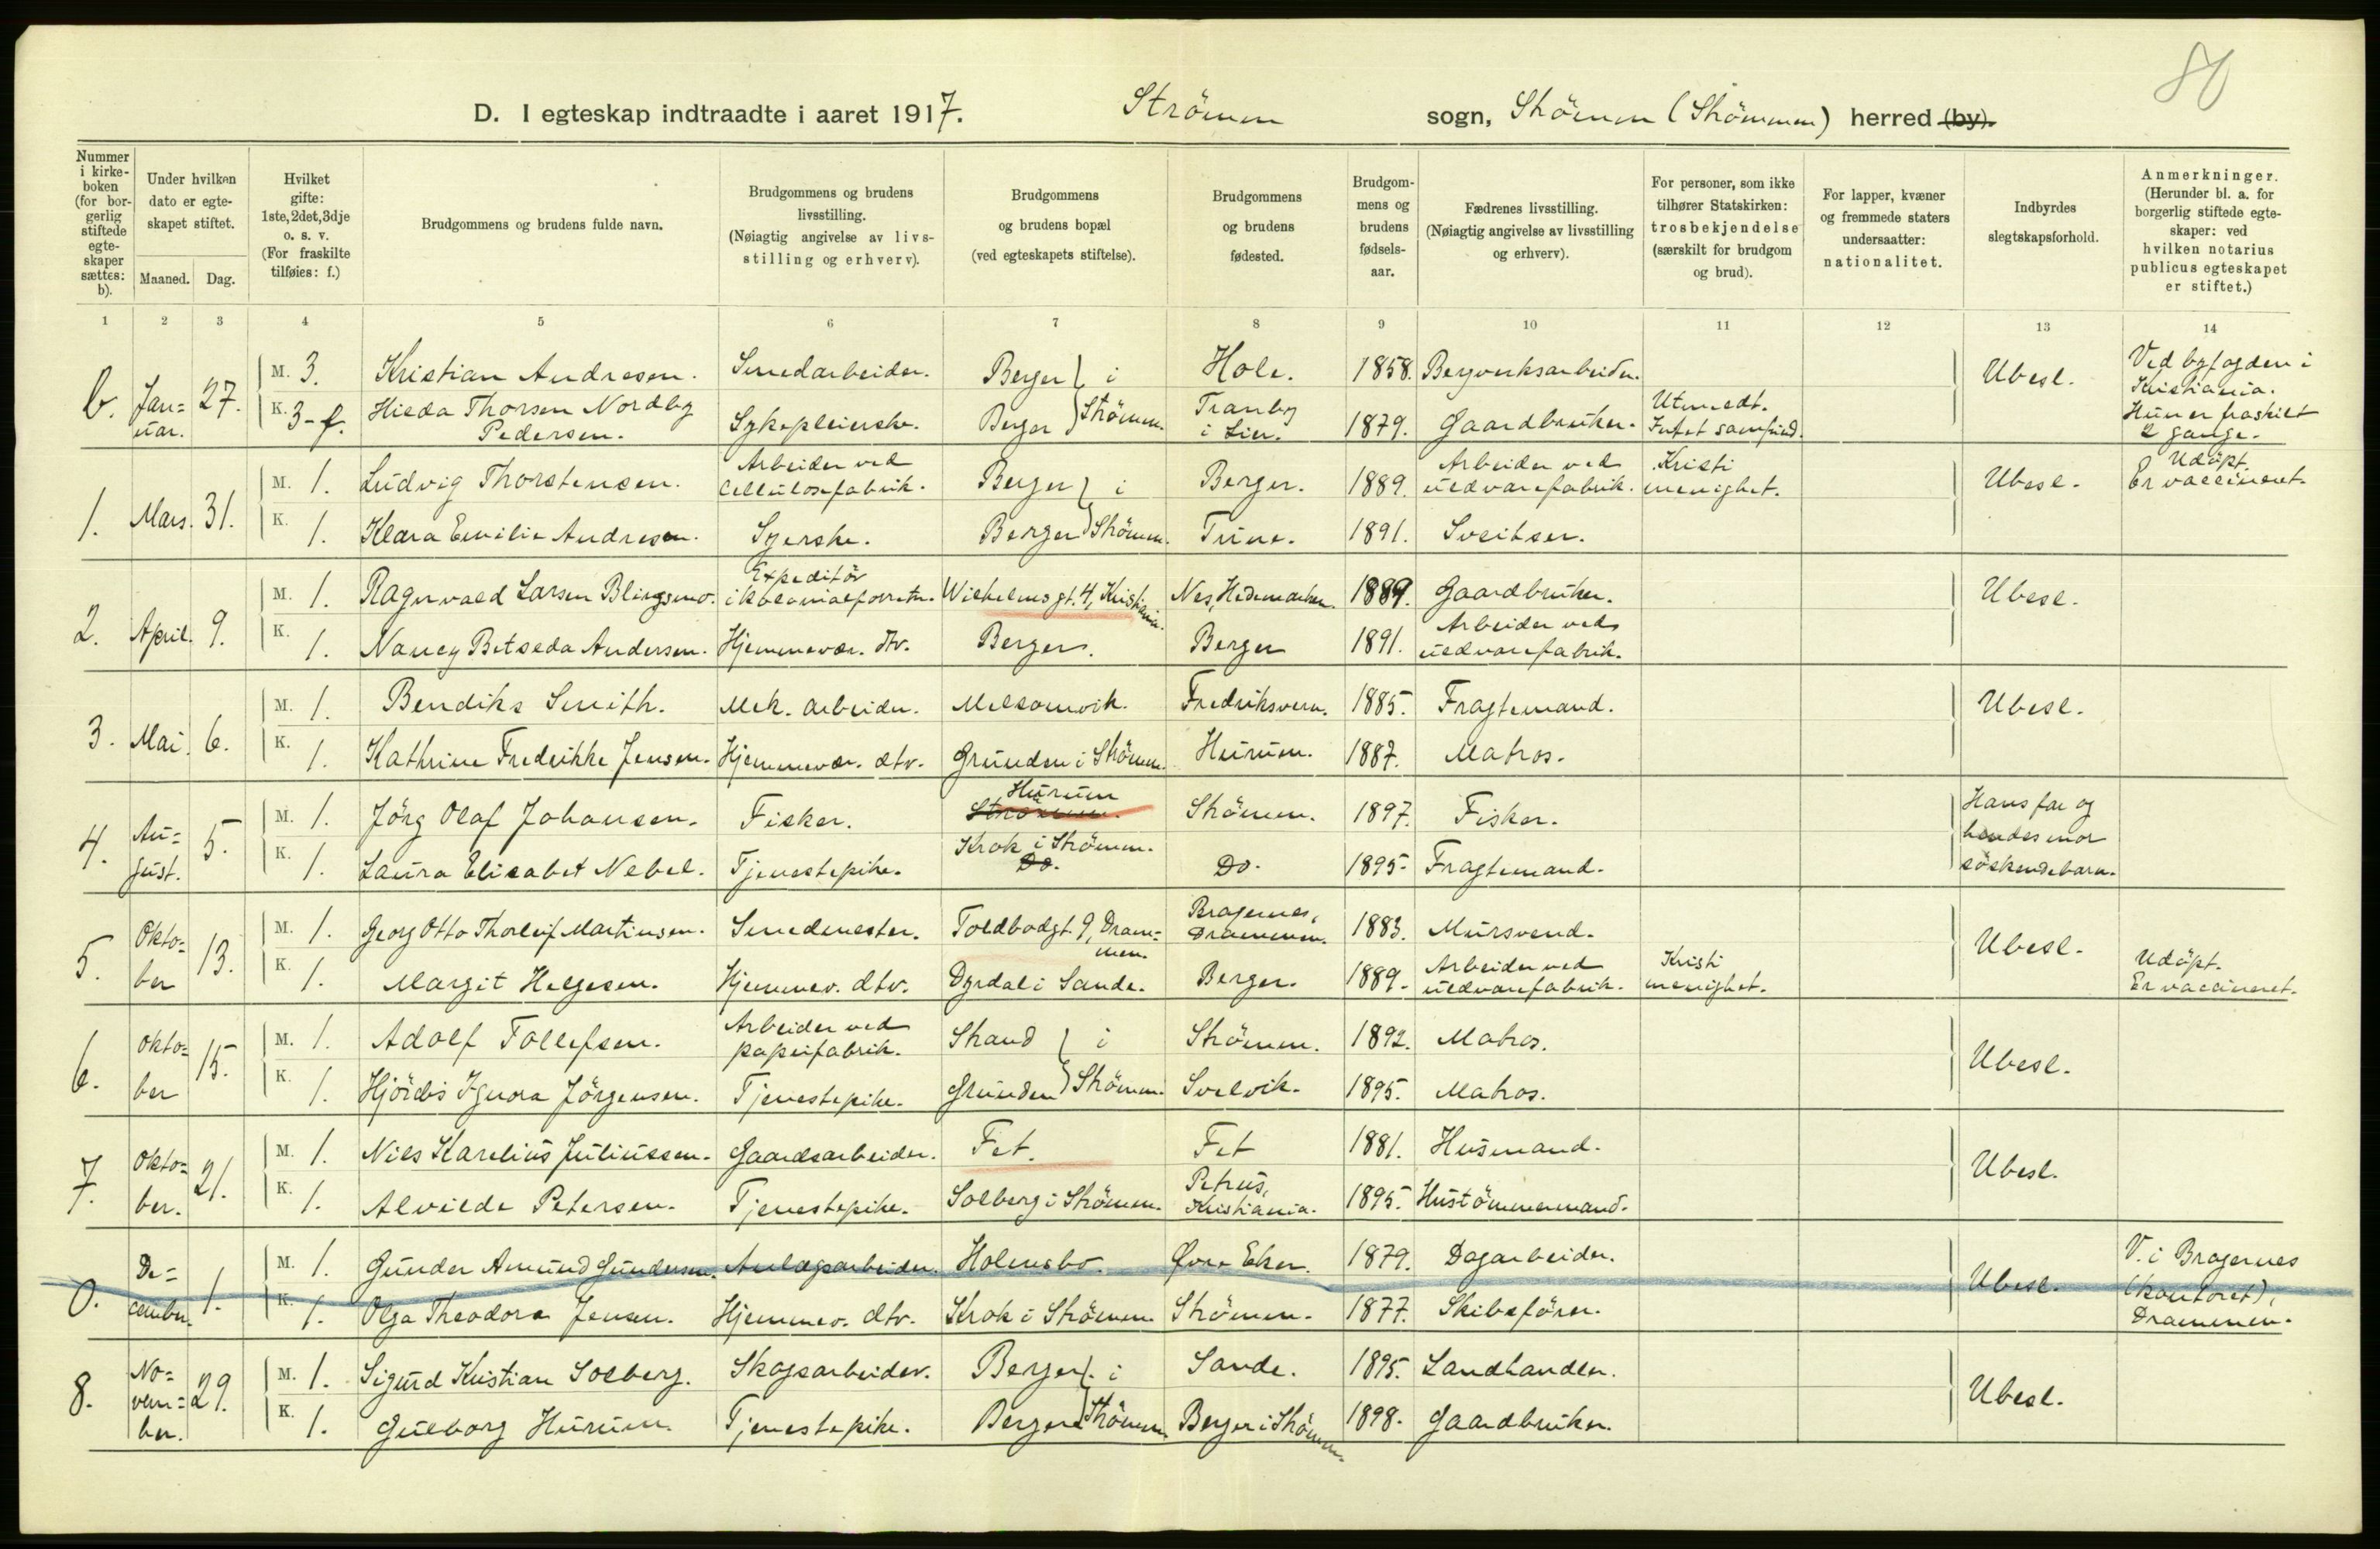 80
D. I egteskap indtraadte i aaret 1917. Strömm sogn, Strömm (Strömmen) herred (by).
Nummer i kirke-boken (for bor-gerlig stiftede egte-skaper sættes: b).
Under hvilken dato er egte-skapet stiftet.
Maaned. Dag.
Hvilket gifte: 1ste, 2det, 3dje o. s. v. (For fraskilte tilføies: f.)
Brudgommens og brudens fulde navn.
Brudgommens og brudens livsstilling. (Nøiagtig angivelse av livs-stilling og erhverv).
Brudgommens og brudens bopæl (ved egteskapets stiftelse).
Brudgommens og brudens fødested.
Brudgom-mens og brudens fødsels-aar.
Fædrenes livsstilling. (Nøiagtig angivelse av livsstilling og erhverv).
For personer, som ikke tilhører Statskirken: trosbekjendelse (særskilt for brudgom og brud).
For lapper, kvæner og fremmede staters undersaatter: nationalitet.
Indbyrdes slegtskapsforhold.
Anmerkninger. (Herunder bl. a. for borgerlig stiftede egte-skaper: ved hvilken notarius publicus egteskapet er stiftet.)
1 2 3 4 5 6 7 8 9 10 11 12 13 14
b. Jan=uar. 27. M. 3. Kristian Andresen. Smedarbeider. Berger } i Hole. 1858. Bergverksarbeider. Ubesl. Ved byfogden i Kristiania.
K. 3-f. Hilda Thorsen Nordby Pedersen. Sykepleierske. Berger } Strömm. Tranby i Lier. 1879. Gaardbruker. Utmeldt. Intet samfund. Hun er fraskilt 2 gange.
1. Mars. 31. M. 1. Ludvig Thorstensen. Arbeider ved cellulosefabrik. Berger } i Berger. 1889. Arbeider ved uldvarefabrik. Kristi menighet. Ubesl. Udöpt. Er vaccineret.
K. 1. Klara Emilie Andresen. Syerske. Berger } Strömm. Tune. 1891. Sveitser.
2. April. 9. M. 1. Ragnvald Larsen Blingsmo. Expeditör i kolonialforretn. Wilhelmsgt. 4, Kristiania. Nes, Hedemarken. 1889. Gaardbruker. Ubesl.
K. 1. Nancy Betseda Andersen. Hjemmevær. dtr. Berger. Berger 1891. Arbeider ved uldvarefabrik.
3. Mai. 6. M. 1. Bendiks Smith. Mek. arbeider. Melsomvik. Fredriksvern. 1885. Fragtemand. Ubesl.
K. 1. Kathrine Fredrikke Jensen. Hjemmevær. dtr. Grunden i Strömm. Hurum. 1887. Matros.
4. Au=gust. 5. M. 1. Jörg Olaf Johansen. Fisker. Hurum Strömm. Strömm. 1897. Fisker. Hans far og hendes mor söskendebarn.
K. 1. Laura Elisabet Nebel. Tjenestepike. Krok i Strömm. Do. Do. 1895. Fragtemand.
5. Okto=ber 13. M. 1. Georg Otto Thorleif Martinsen. Smedmester. Toldbodgt. 9, Dram=men. Bragernes, Drammen. 1883. Mursvend. Ubesl.
K. 1. Margit Helgesen. Hjemmev. dtr. Dyrdal i Sande. Berger. 1889. Arbeider ved uldvarefabrik. Kristi menighet. Udöpt. Er vaccineret.
6. Okto=ber 15. M. 1. Adolf Tollefsen. Arbeider ved papirfabrik. Strand } i Strömm. 1892. Matros. Ubesl.
K. 1. Hjördis Ignora Jörgensen. Tjenestepike. Grunden } Strömm. Svelvik. 1895. Matros.
7. Okto=ber. 21. M. 1. Nils Karelius Juliussen. Gaardsarbeider. Fet. Fet 1881. Husmand. Ubesl.
K. 1. Alvilde Petersen. Tjenestepike. Solberg i Strömm. Petrus, Kristiania. 1895. Hustömmermand.
0. De=cember. 1. M. 1. Gunder Amund Gundersen. Anlægsarbeider. Holmsbo. Øvre Eker. 1879. Dagarbeider. Ubesl. V. i Bragernes (kontoret), Drammen.
K. 1. Olga Theodora Jensen. Hjemmev. dtr. Krok i Strömm Strömm. 1877. Skibsförer.
8. No=vem=ber. 29. M. 1. Sigurd Kristian Solberg. Skogsarbeider. Berger } i Sande. 1895. Landhandler. Ubesl.
K. 1. Gulborg Hurum. Tjenestepike. Berger } Strömm. Berger i Strömm. 1898. Gaardbruker.